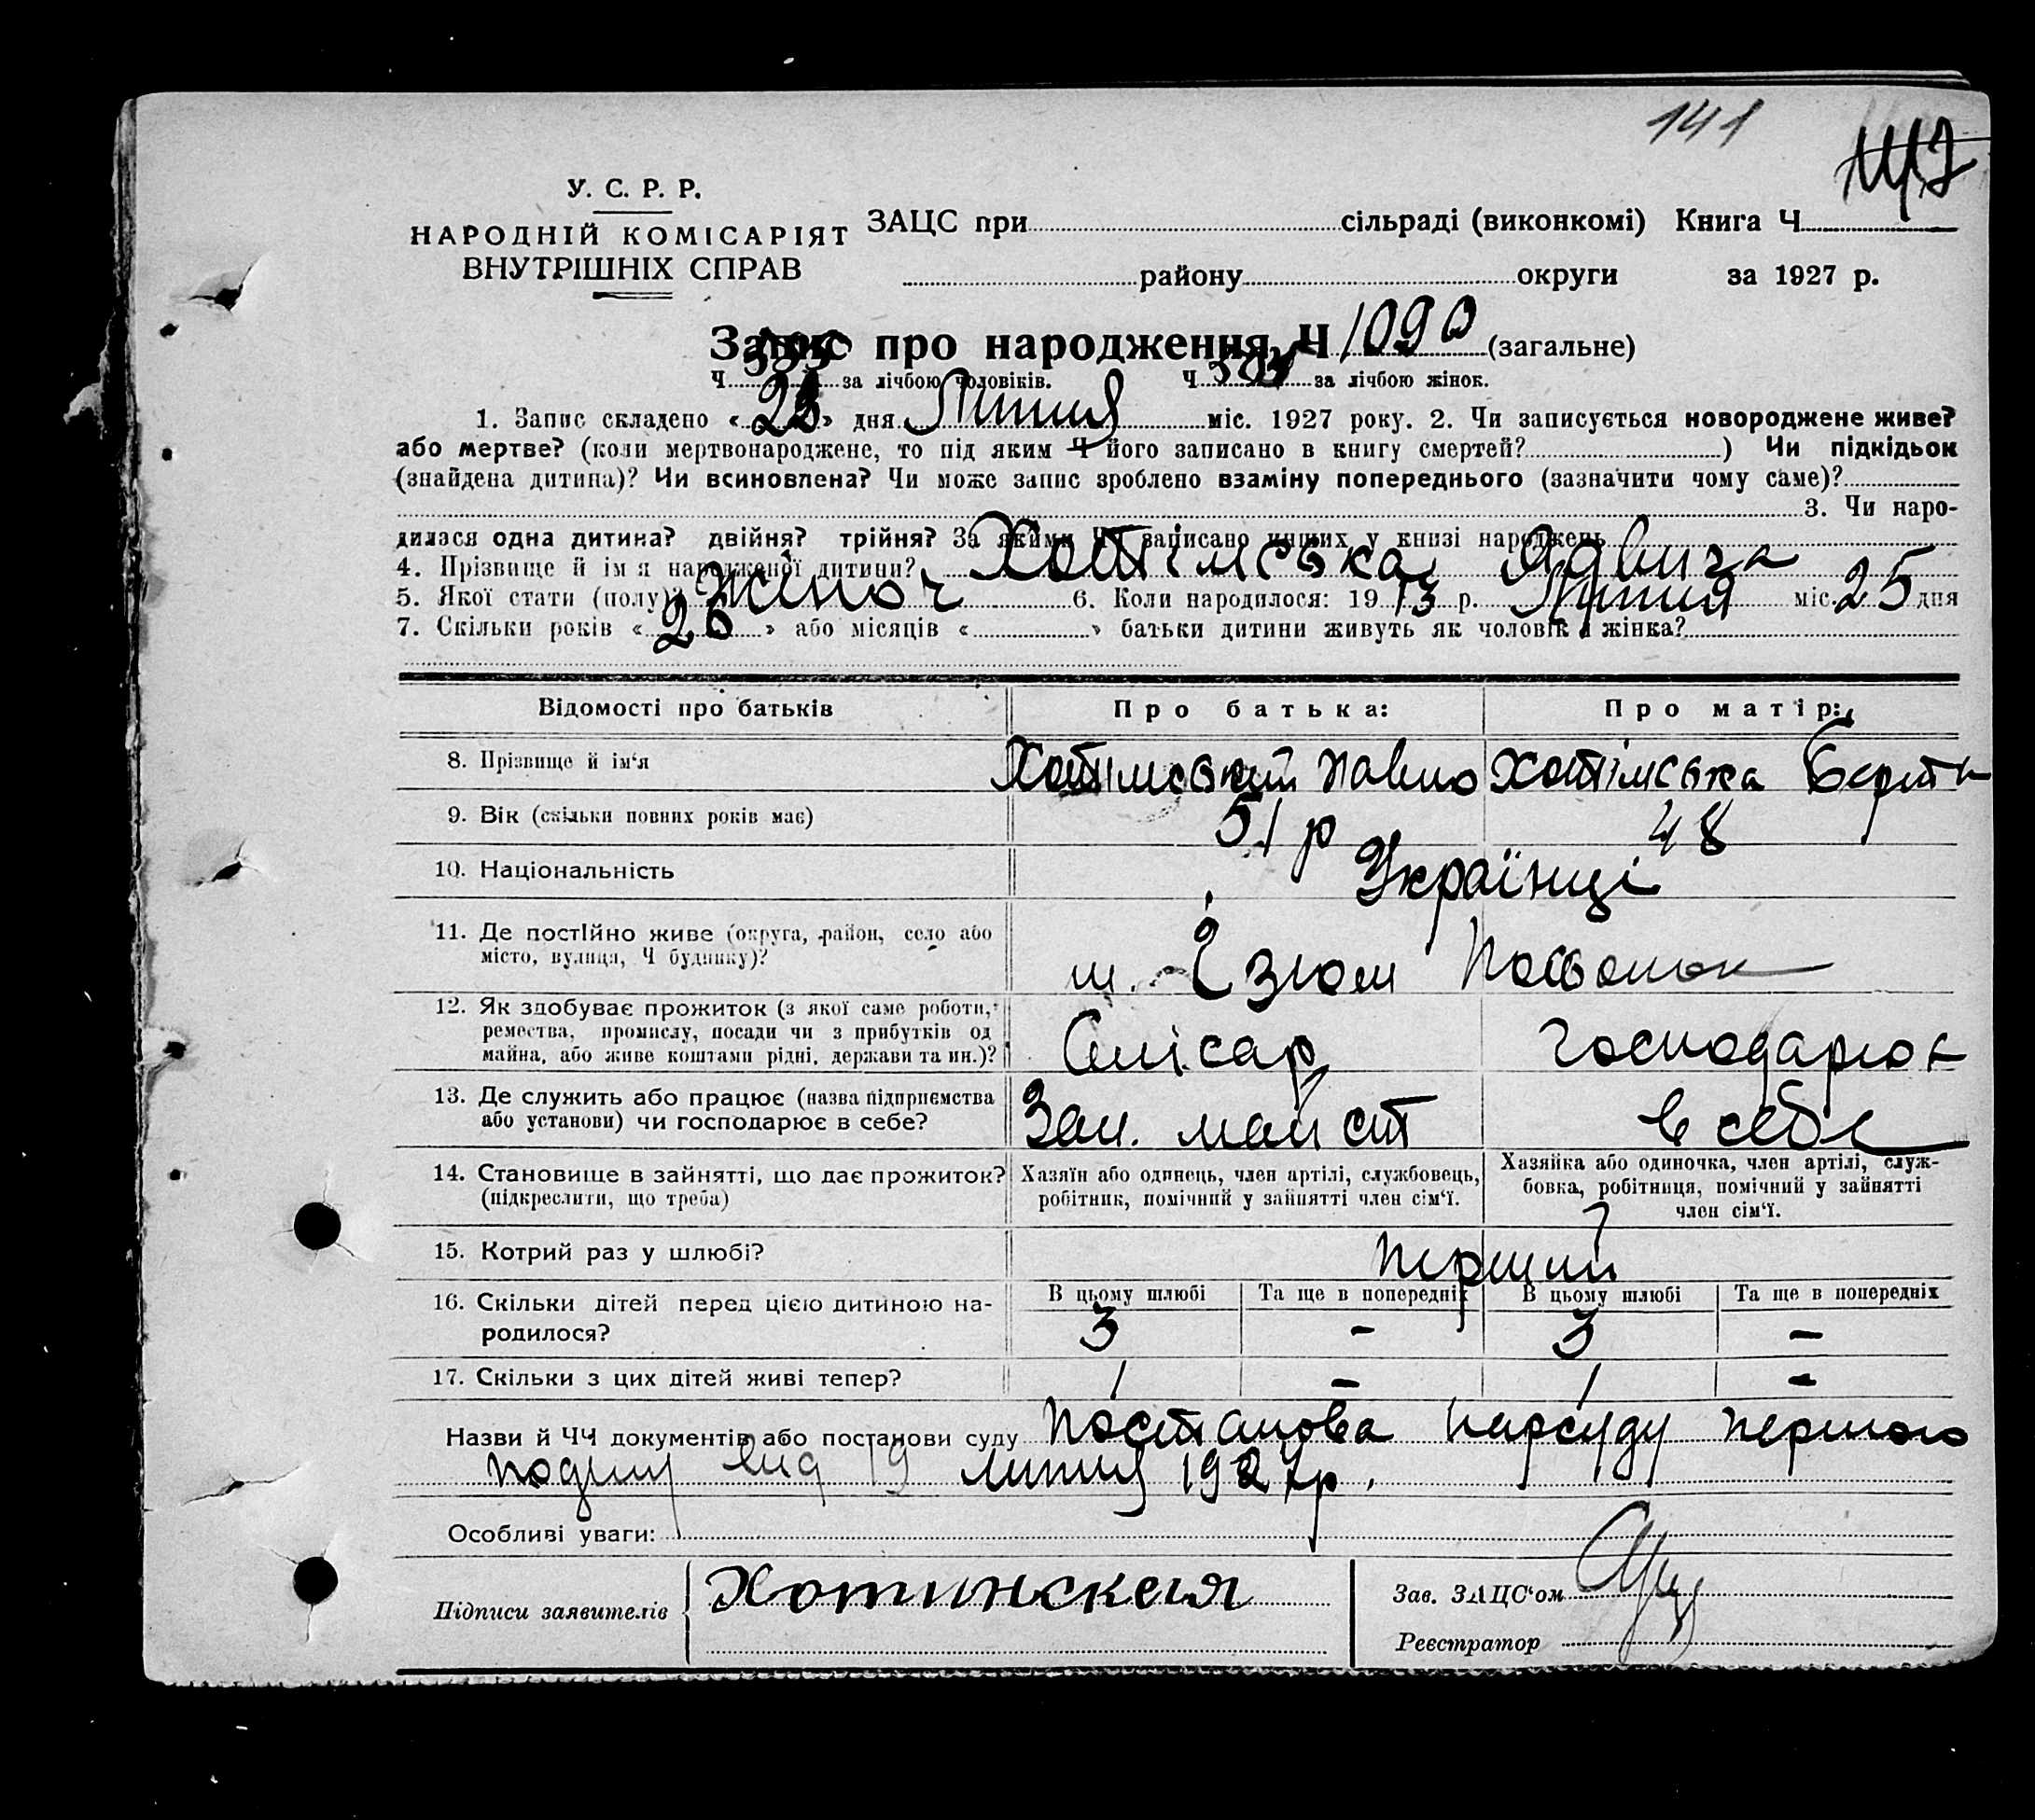 141
У. С. Р. Р.
НАРОДНІЙ КОМІСАРІЯТ
ВНУТРІШНІХ СПРАВ
ЗАЦС при сільраді (виконкомі) Книга Ч
району округи за 1927 р.
Запис про народження Ч 1090 (загальне)
Ч за лічбою чоловіків. Ч за лічбою жінок.
1. Запис складено « » дня Липня міс. 1927 року. 2. Чи записується новороджене живе?
або мертве? (коли мертвонароджене, то під яким Ч його записано в книгу смертей? ) Чи підкідьок
(знайдена дитина)? Чи всиновлена? Чи може запис зроблено взаміну попереднього (зазначити чому саме)?
3. Чи наро-
дилася одна дитина? двійня? трійня? За якими ЧЧ записано инших у книзі народжень
4. Прізвище й ім'я народженої дитини? Хотімська Ядвига
5. Якої стати (полу)? Жіноч 6. Коли народилося: 1913 р. Липня міс. 25 дня
7. Скільки років « 26 » або місяців « » батьки дитини живуть як чоловік і жінка?
Відомості про батьків Про батька: Про матір:
8. Прізвище й ім‘я Хотімський Павло Хотімська Берта
9. Вік (скільки повних років має) 51 р 48
10. Національність Українці
11. Де постійно живе (округа, район, село або
місто, вулиця, Ч будинку)? м. Ізюм Посьолок
12. Як здобуває прожиток (з якої саме роботи,
ремества, промислу, посади чи з прибутків од
майна, або живе коштами рідні, держави та ин.)? Слісар Господарює
13. Де служить або працює (назва підприємства
або установи) чи господарює в себе? Зал. майст в себе
14. Становище в зайнятті, що дає прожиток?
(підкреслити, що треба)
Хазяїн або одинець, член артілі, службовець,
робітник, помічний у зайнятті член сім‘ї.
Хазяйка або одиночка, член артілі, служ-
бовка, робітниця, помічний у зайнятті
член сім‘ї.
15. Котрий раз у шлюбі? Перший
16. Скільки дітей перед цією дитиною на-
родилося?
В цьому шлюбі Та ще в попередніх В цьому шлюбі Та ще в попередніх
3 - 3 -
17. Скільки з цих дітей живі тепер? 1 - 1 -
Назви й ЧЧ документів або постанови суду Постанова Нарсуду першого
від 19 липня 1927 р.
Особливі уваги:
Підписи заявителів Хотинская
Зав. ЗАЦС‘ом
Реєстратор